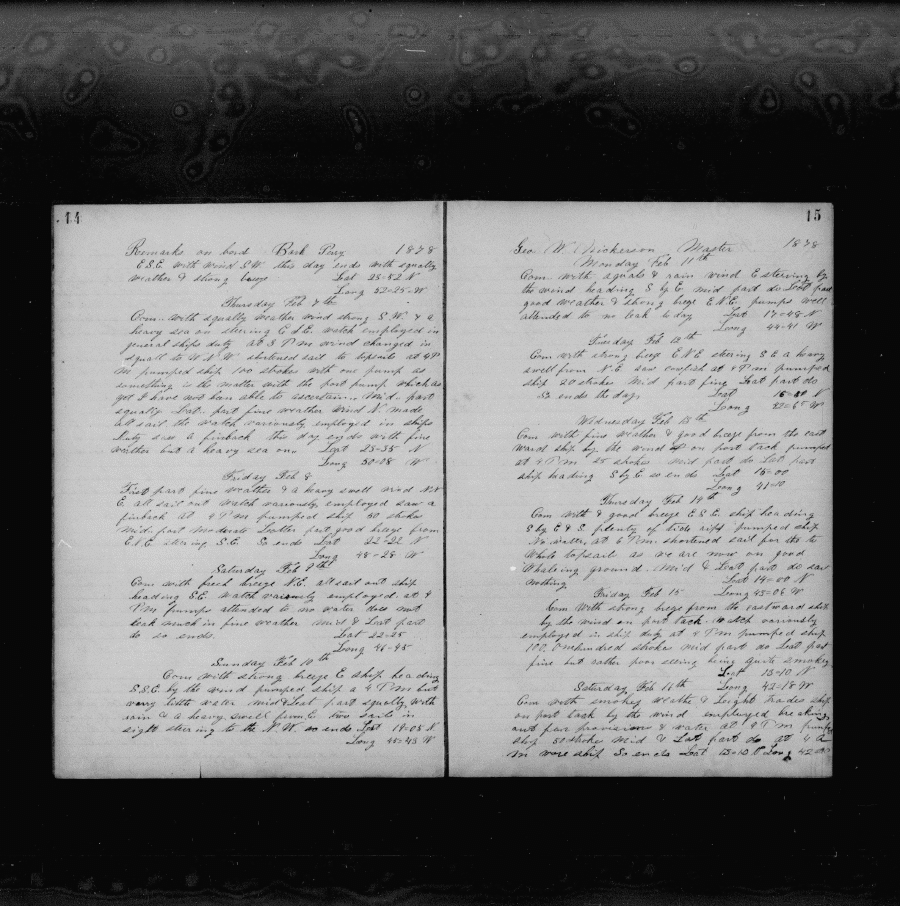 14
Remarks on bord Bark Perry 1878
E.S.E. with wind S.W. this day ends with squally
weather & strong breeze Lat 25-52 N
Long 52=25=W
Thursday Feb 7th
Com. with squally weather wind strong S.W. & a
heavy sea on steering E S E. watch employed in
general ships duty at 3 P m wind changed in
squall to W.N.W. shortened sail to topsails at 4 P
m pumped ship 100 strokes with one pump as
something is the matter with the port pump which as
yet I have not ban able to ascertain. Mid. part
squally Lat. part fine weather wind N made
all sail the watch variously employed in ships
Duty saw a finback this day ends with fine
weither but a heavy sea on. Lat 23-35 N
Long 50=08 W
Friday Feb 8
First part fine weather & a heavy swell wind NW
E. all sail out watch variously employed saw a
finback at 4 P m pumped ship 50 stroke
Mid. part moderate Latter part good breeze from
E.N.E. steering S.E. So ends Lat 22=22 N
Long 48=28 W
Saturday Feb 9th
Com with fresh breeze N.E. all sail out ship
heading S.E. watch variously employed. at 4
P m pumps attended to no water does not
leak much in fine weather Mid & Lat part
do so ends. Lat 22=25
Long 46-45
Sunday Feb 10th
Com with strong breeze E ship heading
S.S.E. by the wind pumped ship a 4 P m but
verry little water Mid & Lat part squally with
rain & a heavy swell from E two sails in
sight steering to the N.W. so ends Lat 19=05 N
Long 45=45 W
15
Geo. W. Nickerson Master 1878
Monday Feb 11th
Com. with squals & rain wind E steering by
the wind heading S by E. mid part do Lat part
good weather & strong breze E N E. pumps well
attended to no leak to day Lat 17=48 N
Long 44-41 W
Tuesday Feb 12th
Com with strong breze E N E steering S E a heavy
swell from N.E. saw cowfish at 4 P m pumped
ship 20 strokes Mid part fine Lat part do
So ends the day Lat N
Long W
Wednesday Feb 13th
Com with fine weather & good breeze from the east
ward ship by the wind on port tack pumped
at 4 P m 25 strokes mid part do Lat part
ship heading S by E so ends Lat 15=00
Long 41=10
Thursday Feb 14th
Com with & good breeze E S E. ship heading
S by E & S. plenty of tide rips pumped ship
No water, at 6 P.m. shortened sail for the to
Whole topsail as we are now on good
Whaleing ground. Mid & Lat part do saw
nothing Lat 14=00 N
Friday Feb 15 Long 43=06 W
Com With strong breze from the eastward ship
by the wind on port tack. Watch variously
employed in ship duty at 4 P m pumped ship
100. Onehundred stroke mid part do Lat part
fine but rather poor seeing being quite smokey
Lat 13-10 N
Saturday Feb 16th Long 42=18 W
Com with smokey weathe & Leight trades ship
on port tack by the wind employed breaking
out for provision & water at 4 P m pumped
ship 50 stroke Mid & Lat part do at 4 A
m wore ship So ends Lat 13=10 N Long 42